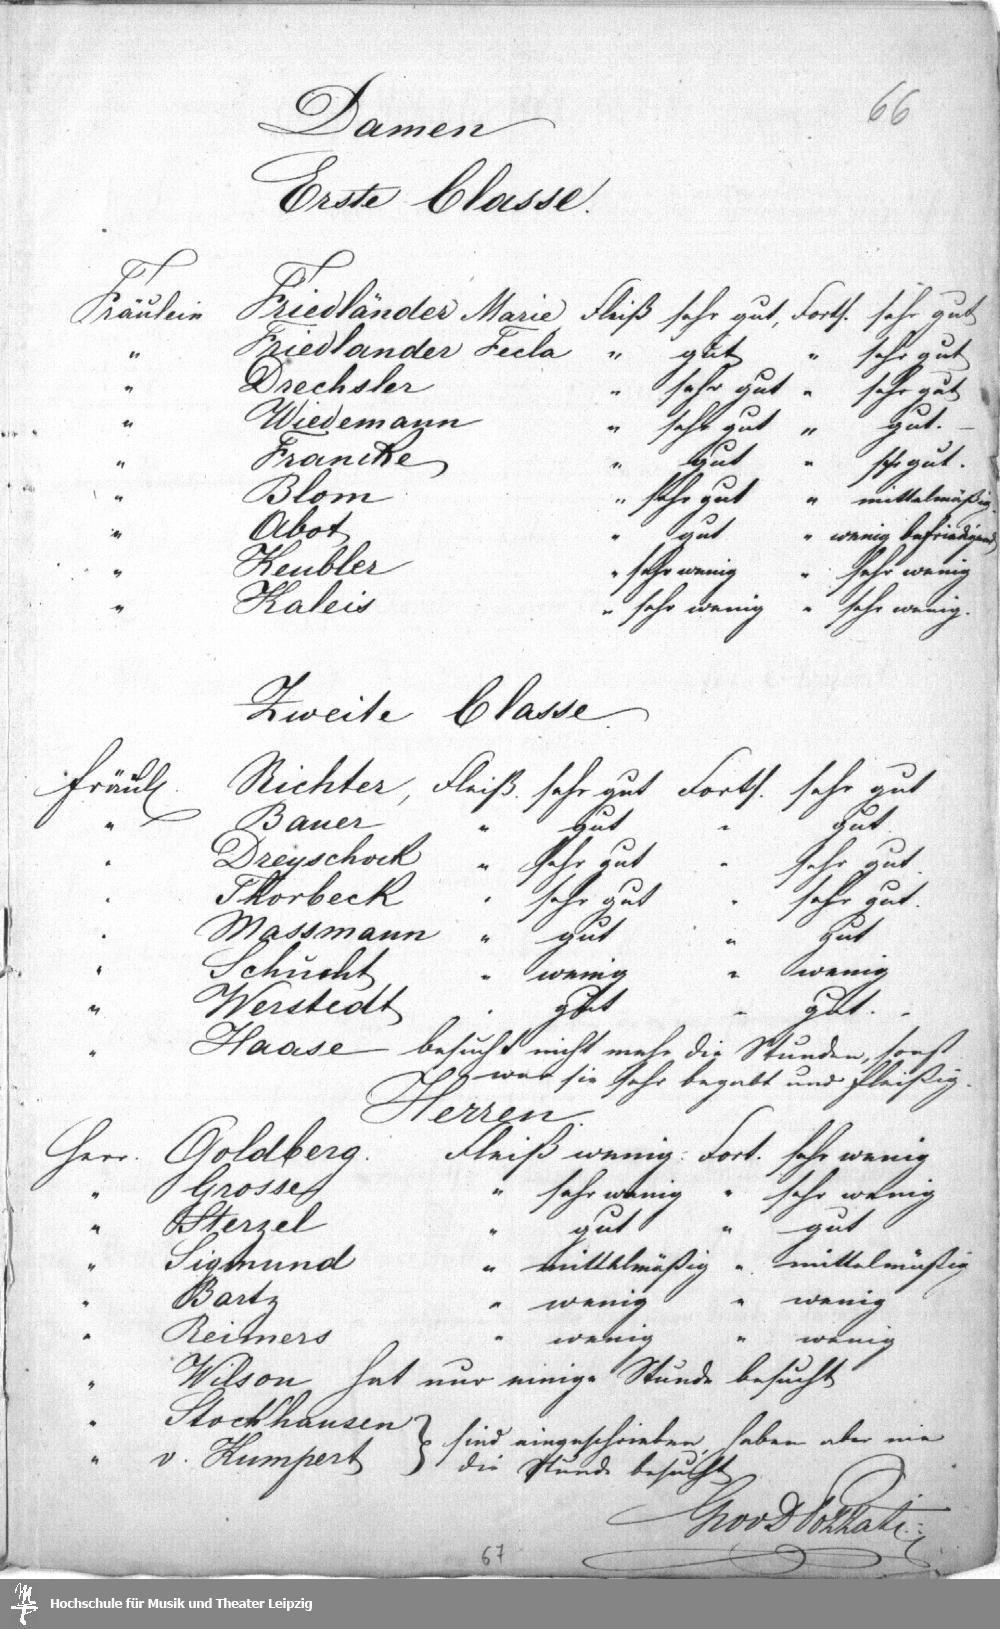 66
Damen
Erste Classe.
Fräulein Friedländer Marie Fleiß sehr gut, Forts. sehr gut
" Friedlander Tecla " gut " sehr gut
" Drechsler " sehr gut " sehr gut
" Wiedemann " sehr gut " gut. –
" Francke " gut " sehr gut.
" Blom " sehr gut " mittelmäßig.
" Abot " gut " wenig befriedigend
" Keubler " sehr wenig " sehr wenig
" Kaleis " sehr wenig " sehr wenig.
Zweite Classe
Fräul. Richter, Fleiß. sehr gut Forts. sehr gut
" Bauer " gut " gut
" Dreyschock " sehr gut " sehr gut.
" Thorbeck " sehr gut " sehr gut.
" Massmann " gut " gut
" Schucht " wenig " wenig
" Werstedt " gut " gut.
" Haase besucht nicht mehr die Stunden, sonst
war sie sehr begabt und fleißig.
Herren.
Herr. Goldberg. Fleiß wenig. Fort. sehr wenig
" Grosse " sehr wenig " sehr wenig
" Sterzel " gut " gut
" Sigmund " mittelmäßig " mittelmäßig
" Bartz " wenig " wenig
" Reimers " wenig " wenig
" Wilson hat nur einige Stunde besucht
" Stockhausen } sind eingeschrieben, haben aber nie
" v. Kumpert die Stunde besucht
67
Hochschule für Musik und Theater Leipzig